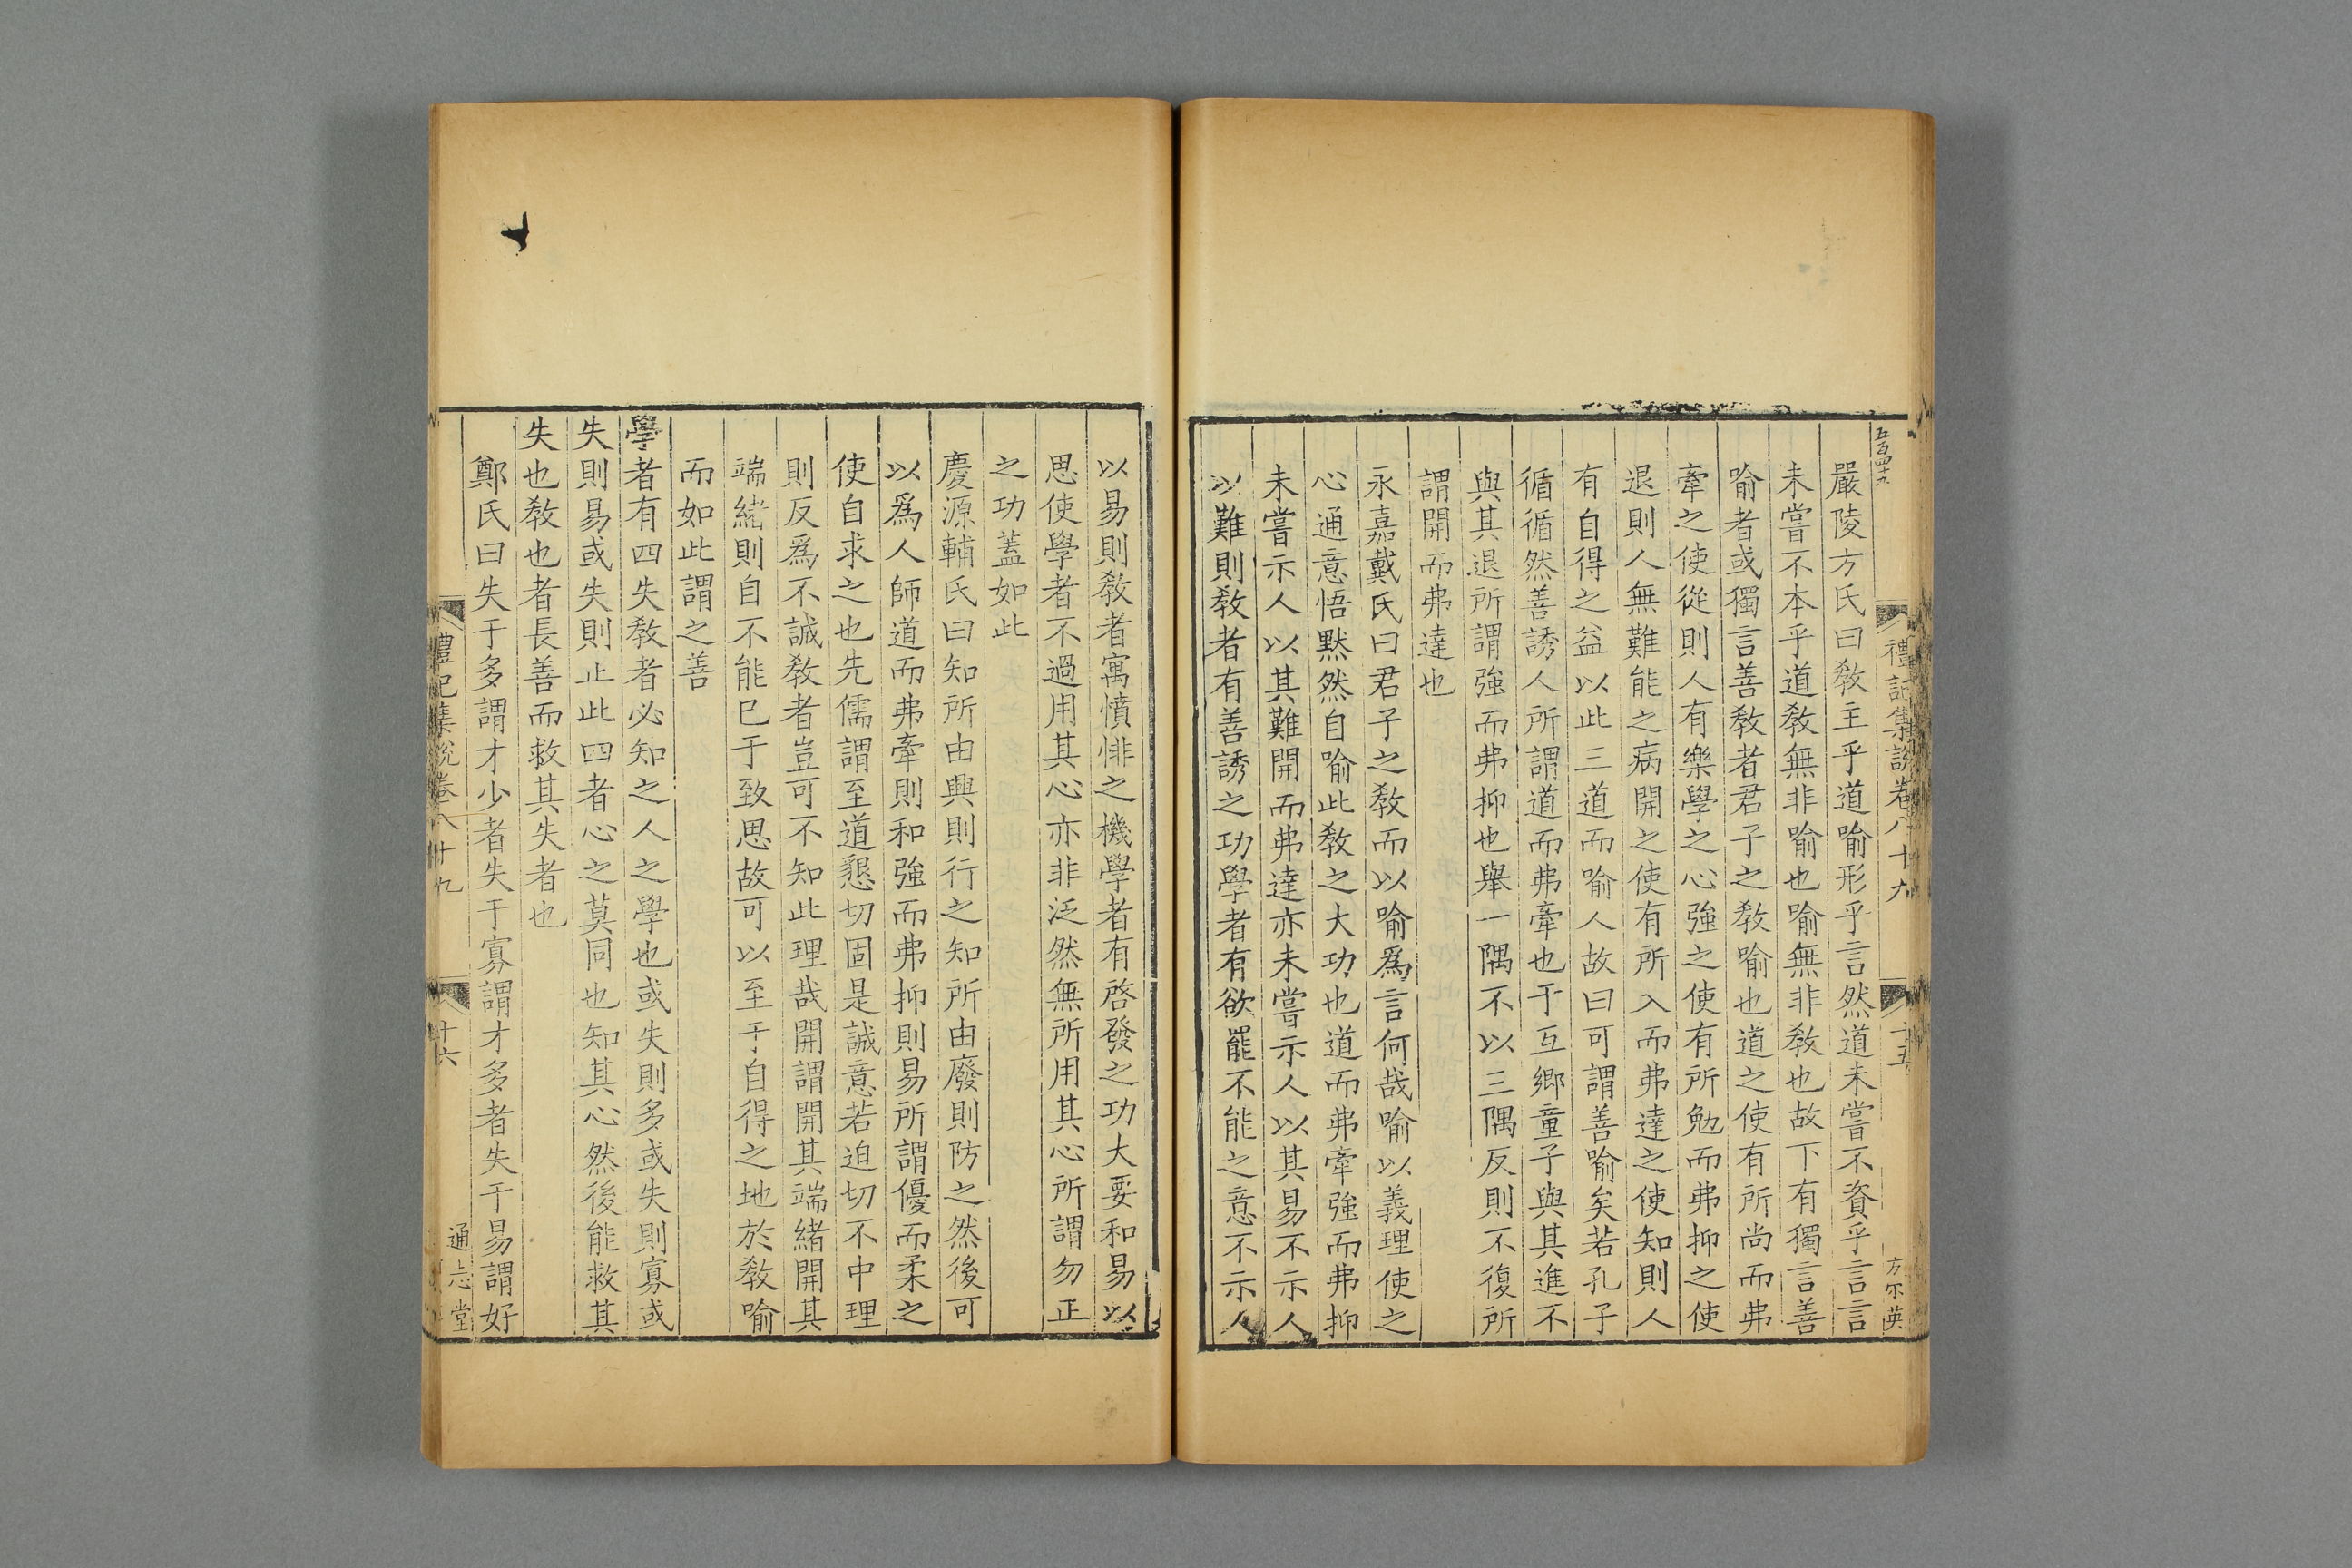 五百四十九
禮記集說卷八十九
十五
方尔英
嚴陵方氏曰敎主乎道喻形乎言然道未嘗不資乎言言
未嘗不本乎道敎無非喻也喻無非敎也故下有獨言善
喻者或獨言善敎者君子之敎喻也道之使有所尚而弗
牽之使從則人有樂學之心強之使有所勉而弗抑之使
退則人無難能之病開之使有所入而弗達之使知則人
有自得之益以此三道而喻人故曰可謂善喻矣若孔子
循循然善誘人所謂道而弗牽也于互鄉童子與其進不
與其退所謂強而弗抑也舉一隅不以三隅反則不復所
謂開而弗達也
永嘉戴氏曰君子之敎而以喻爲言何哉喻以義理使之
心通意悟默然自喻此敎之大功也道而弗牽強而弗抑
未嘗示人以其難開而弗達亦未嘗示人以其易不示人
以難則敎者有善誘之功學者有欲罷不能之意不示人
以易則敎者寓憤悱之機學者有啓發之功大要和易以
思使學者不過用其心亦非泛然無所用其心所謂勿正
之功蓋如此
慶源輔氏曰知所由興則行之知所由廢則防之然後可
以爲人師道而弗牽則和強而弗抑則易所謂優而柔之
使自求之也先儒謂至道懇切固是誠意若迫切不中理
則反爲不誠敎者豈可不知此理哉開謂開其端緒開其
端緒則自不能已于致思故可以至于自得之地於敎喻
而如此謂之善
學者有四失敎者必知之人之學也或失則多或失則寡或
失則易或失則止此四者心之莫同也知其心然後能救其
失也敎也者長善而救其失者也
鄭氏曰失于多謂才少者失于寡謂才多者失于易謂好
禮記集說卷八十九
十六
通志堂